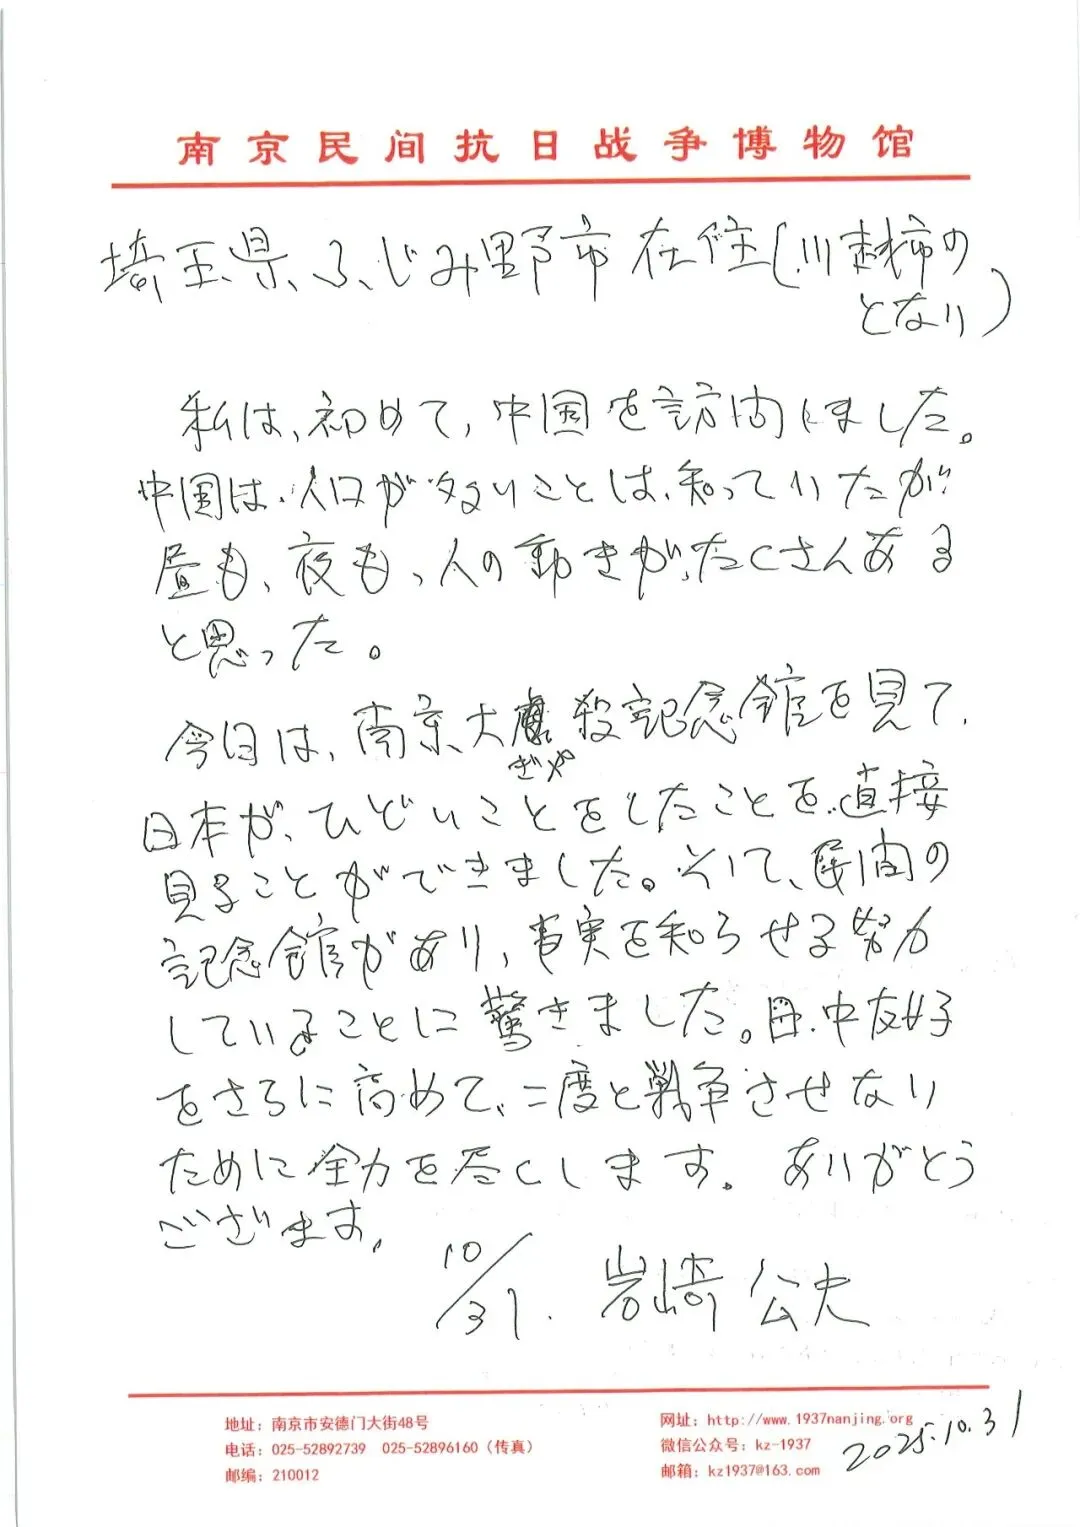 南京民间抗日战争博物馆
埼玉県、ふじみ野市在住(川越市の
となり)
私は、初めて、中国を訪問しました。
中国は、人口が多いことは、知っていたが
昼も、夜も、人の動きが、たくさんある
と思った。
今日は、南京大虐殺記念館を見て、
ぎゃ
日本が、ひどいことをしたことを、直接
見ることができました。そして、民間の
記念館があり、事実を知らせる努力
していることに驚きました。日・中友好
をさらに高めて、二度と戦争させない
ために全力を尽くします。ありがとう
ございます。
10/31. 岩崎 公夫
地址:南京市安德门大街48号
电话:025-52892739 025-52896160(传真)
邮编:210012
网址:http://www.1937nanjing.org
微信公众号:kz-1937
邮箱:kz1937@163.com
2025.10.31